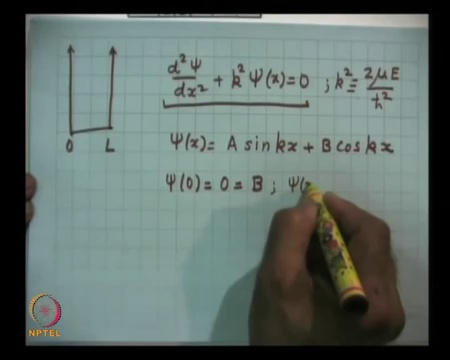 d²Ψ/dx² + k² Ψ(x) = 0 ; k² = 2μE/ħ²
0 L
Ψ(x) = A sin kx + B cos kx
Ψ(0) = 0 = B ; Ψ(
NPTEL